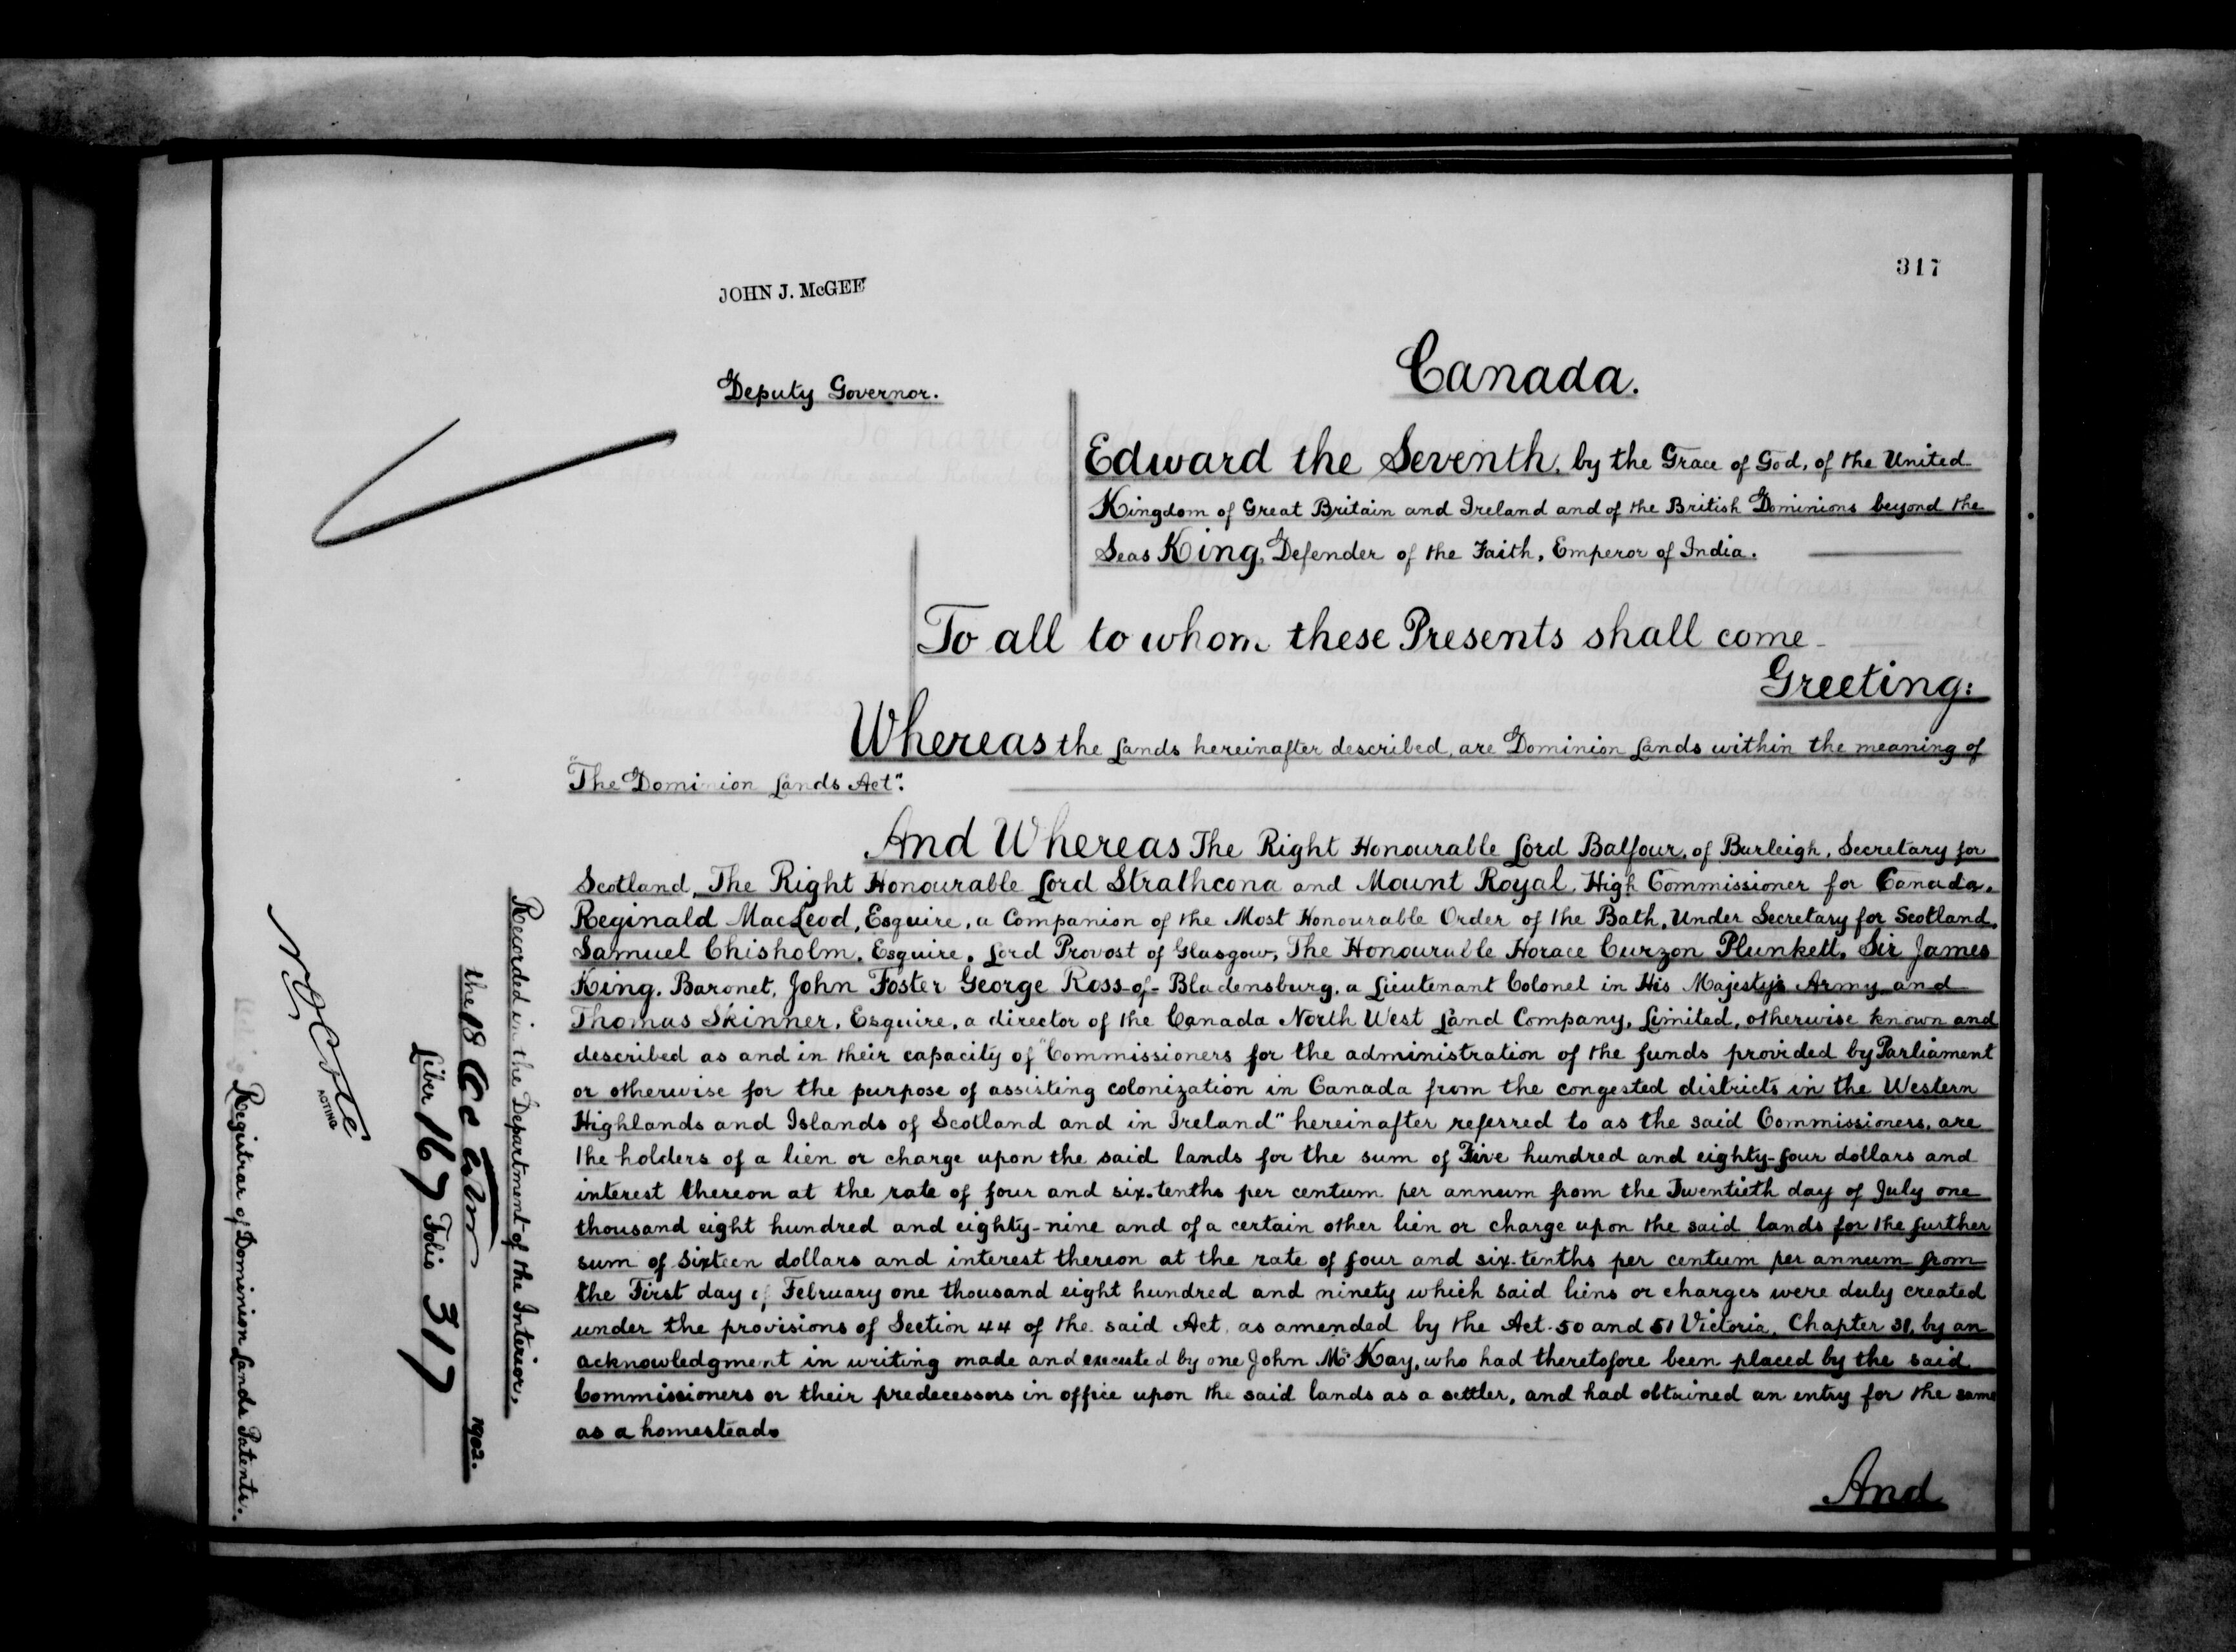 317
JOHN J. McGEE
Deputy Governor.
Canada.
Edward the Seventh, by the Grace of God, of the United
Kingdom of Great Britain and Ireland and of the British Dominions beyond the
Seas King, Defender of the Faith, Emperor of India.
To all to whom these Presents shall come
Greeting:
Whereas the Lands hereinafter described, are Dominion Lands within the meaning of
"The Dominion Lands Act".
And Whereas The Right Honourable Lord Balfour, of Burleigh, Secretary for
Scotland, The Right Honourable Lord Strathcona and Mount Royal, High Commissioner for Canada,
Reginald MacLeod, Esquire, a Companion of the Most Honourable Order of the Bath, Under Secretary for Scotland,
Samuel Chisholm, Esquire, Lord Provost of Glasgow, The Honourable Horace Curzon Plunkett, Sir James
King, Baronet, John Foster George Ross-of-Bladensburg, a Lieutenant Colonel in His Majesty's Army and
Thomas Skinner, Esquire, a director of the Canada North West Land Company, Limited, otherwise known and
described as and in their capacity of "Commissioners for the administration of the funds provided by Parliament
or otherwise for the purpose of assisting colonization in Canada from the congested districts in the Western
Highlands and Islands of Scotland and in Ireland" hereinafter referred to as the said Commissioners, are
the holders of a lien or charge upon the said lands for the sum of Five hundred and eighty-four dollars and
interest thereon at the rate of four and six-tenths per centum per annum from the Twentieth day of July one
thousand eight hundred and eighty-nine and of a certain other lien or charge upon the said lands for the further
sum of Sixteen dollars and interest thereon at the rate of four and six-tenths per centum per annum from
the First day of February one thousand eight hundred and ninety which said liens or charges were duly created
under the provisions of Section 44 of the said Act, as amended by the Act 50 and 51 Victoria, Chapter 31, by an
acknowledgment in writing made and executed by one John McKay, who had theretofore been placed by the said
Commissioners or their predecessors in office upon the said lands as a settler, and had obtained an entry for the same
as a homestead.
And
Recorded in the Department of the Interior,
the 18 1902.
Liber 167 Folio 317
N O Coté
ACTING
Registrar of Dominion Lands Patents.